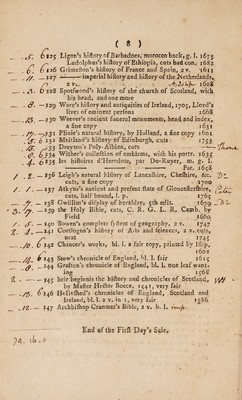 ( 8 )
.5. 6 125 Ligne's history of Barbadoes, morocco back, g. l. 1673
Ludolphus's history of Ethiopia, cuts bad con. 1682
.6. 6 126 Grimeston's history of France and Spain, 2 v. 1613
.11. 127 imperial history and history of the Netherlands,
2 v. 1608
.3. 6 128 Spotswood's history of the church of Scotland, with
his head, and one more
.8. 129 Ware's history and antiquities of Ireland, 1705, Lloyd's
lives of eminent persons 1668
.13. 130 Weever's ancient funeral monuments, head and index,
a fine copy 1631
.17. 131 Plinie's natural history, by Holland, a fine copy 1601
.5. 6 132 Maitland's history of Edinburgh, cuts 1753
.15. 133 Drayton's Poly-Albion, cuts
. 6 334 Wither's collection of emblems, with his portr. 1635
.4. 6 135 Les histoires d'Herodote, par Du-Rayer, m. g. l.
Par. 1658
1.2. 136 Leigh's natural history of Lancashire, Cheshire, &c.
cuts, a fine copy 1700
1.1. 137 Atkyns's ancient and present state of Gloucestershire,
cuts, half bound, l. p. 1768
.7. 138 Gwillim's display of heraldry, 5th edit. 1679
3.17. 139 the Holy Bible, cuts, C. R. G. L. R. Camb. by
Field 1660
.5. 140 Bowen's complete system of geography, 2 v. 1747
2.4. 141 Coetlogon's history of Arts and sciences, 2 v. cuts,
neat 1745
.10. 6 142 Chaucer's works, bl. l. a fair copy, printed by Islip,
1602
.14. 6 143 Stow's chronicle of England, bl. l. fair 1615
.8. 144 Grafton's chronicle of England, bl. l. one leaf want-
ing 1568
2. 145 heir beginnis the history and chronicles of Scotland,
by Master Hector Boece. 1541, very fair
.13. 6 146 Holinshed's chronicles of England, Scotland and
Ireland, bl. l. 2 v. in 1, very fair 1586
.12. 147 Archbishop Cranmer's Bible, 2 v. b. l. imp.
End of the First Day's Sale.